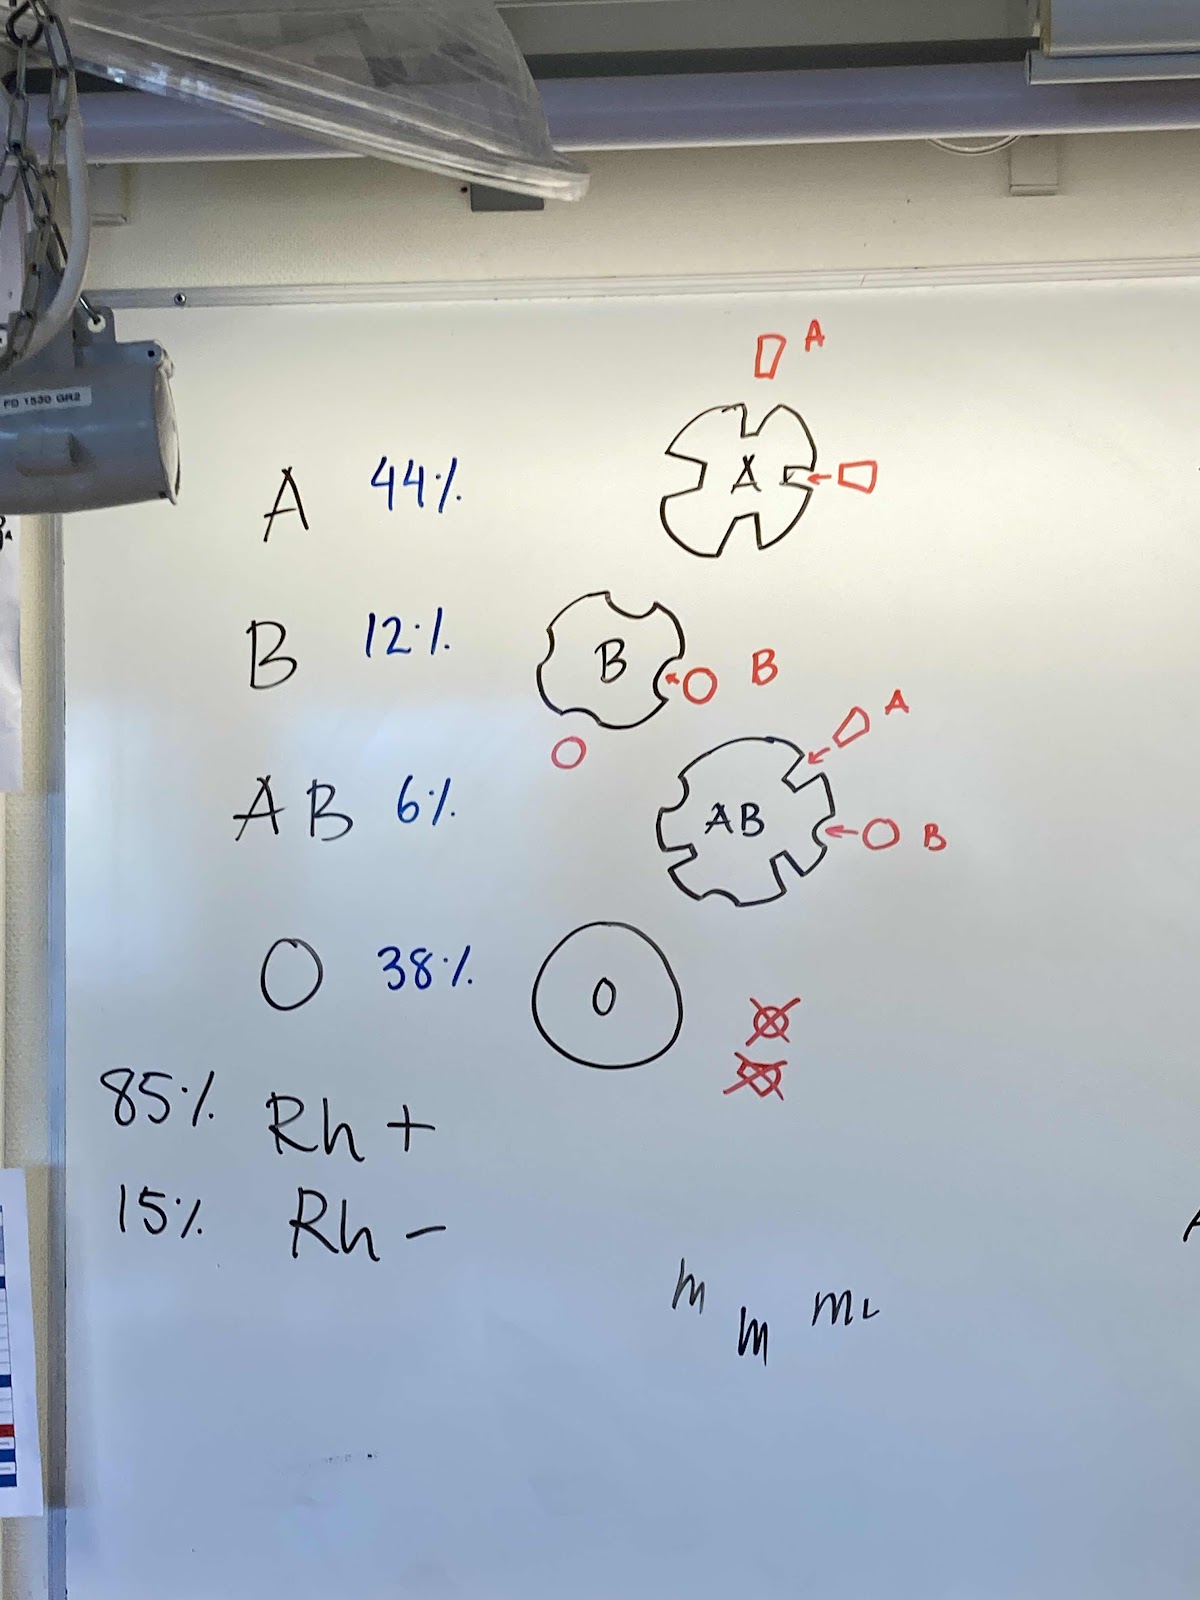 FD 1530 GR2
A
A 44%
A
B 12%
B
B
A
AB 6%
AB
B
O 38%
O
85% Rh +
15% Rh -
m
m